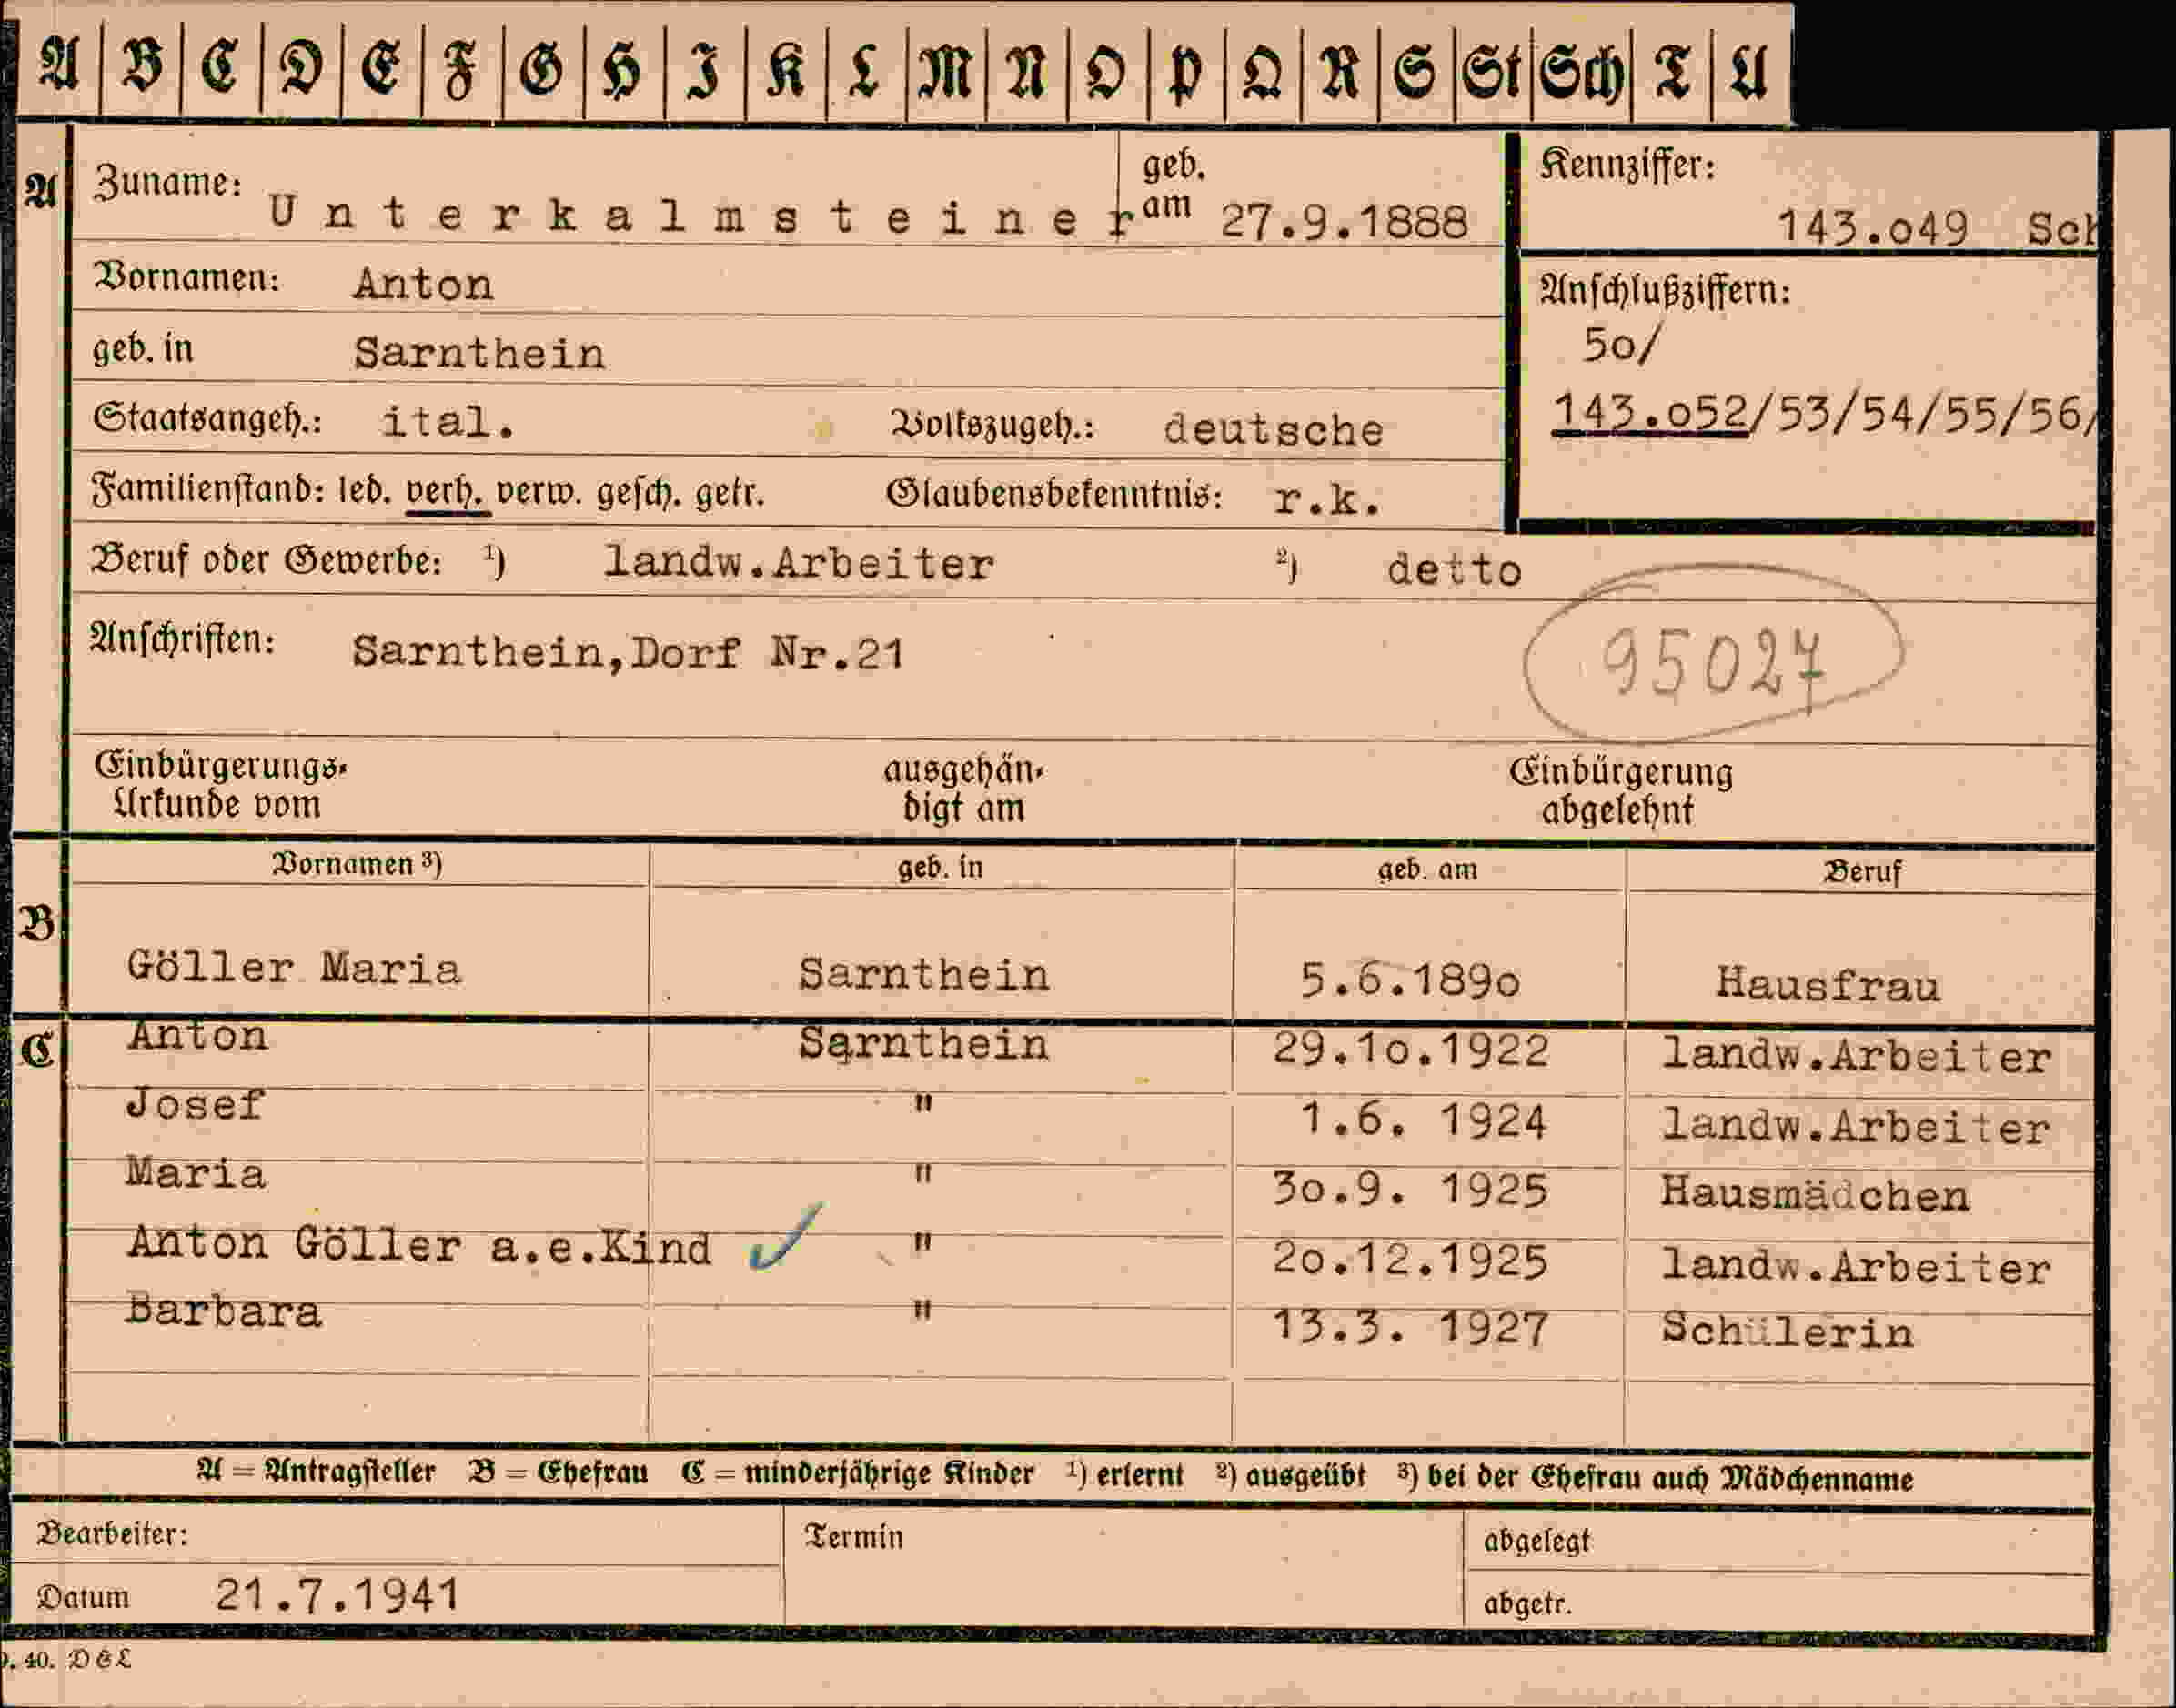 A B C D E F G H I K L M N O P Q R S St Sch T U
A Zuname: Unterkalmsteiner geb. am 27.9.1888 Kennziffer: 143.o49 Sch
Vornamen: Anton Anschlußziffern:
geb. in Sarnthein 5o/
Staatsangeh.: ital. Volkszugeh.: deutsche 143.o52/53/54/55/56/
Familienstand: led. verh. verw. gesch. getr. Glaubensbekenntnis: r.k.
Beruf oder Gewerbe: 1) landw.Arbeiter 2) detto
Anschriften: Sarnthein,Dorf Nr.21 95027
Einbürgerungs- ausgehän- Einbürgerung
Urkunde vom digt am abgelehnt
Vornamen 3) geb. in geb. am Beruf
B
Göller Maria Sarnthein 5.6.189o Hausfrau
C Anton Sarnthein 29.1o.1922 landw.Arbeiter
Josef " 1.6. 1924 landw.Arbeiter
Maria " 3o.9. 1925 Hausmädchen
Anton Göller a.e.Kind ✓ " 2o.12.1925 landw.Arbeiter
Barbara " 13.3. 1927 Schülerin
A = Antragsteller B = Ehefrau C = minderjährige Kinder 1) erlernt 2) ausgeübt 3) bei der Ehefrau auch Mädchenname
Bearbeiter: Termin abgelegt
Datum 21.7.1941 abgetr.
. 40. D & L